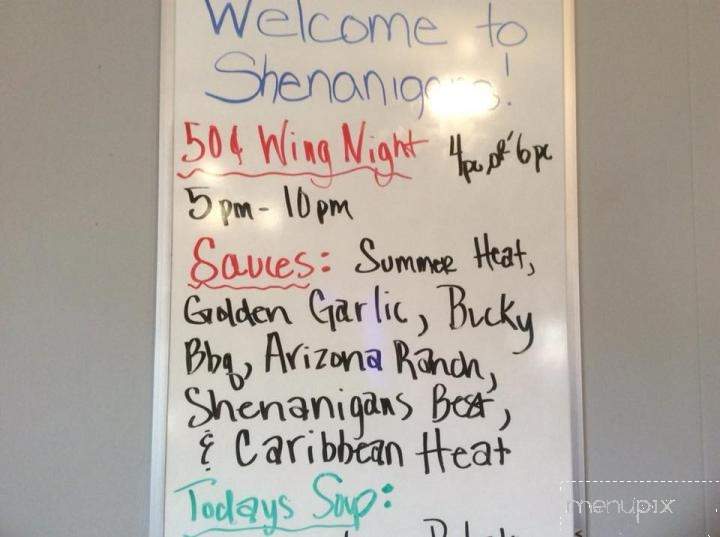 Welcome to
Shenanigans!
50¢ Wing Night 4pc or 6pc
5pm - 10pm
Sauces: Summer Heat,
Golden Garlic, Bucky
Bbq, Arizona Ranch,
Shenanigans Best,
& Caribbean Heat
Todays Soup:
menupix